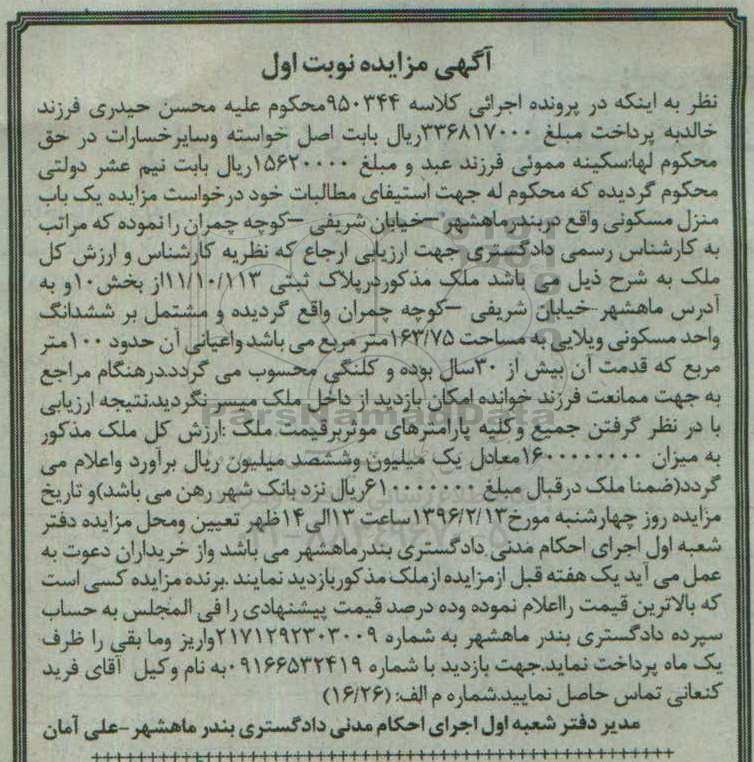 آگهی مزایده نوبت اول
نظر به اینکه در پرونده اجرائی کلاسه ۹۵۰۳۴۴محکوم علیه محسن حیدری فرزند
خالدبه پرداخت مبلغ ۳۳۶۸۱۷۰۰۰ریال بابت اصل خواسته وسایرخسارات در حق
محکوم لها:سکینه مموئی فرزند عبد و مبلغ ۱۵۶۲۰۰۰۰ریال بابت نیم عشر دولتی
محکوم گردیده که محکوم له جهت استیفای مطالبات خود درخواست مزایده یک باب
منزل مسکونی واقع دربندرماهشهر –خیابان شریفی –کوچه چمران را نموده که مراتب
به کارشناس رسمی دادگستری جهت ارزیابی ارجاع که نظریه کارشناس و ارزش کل
ملک به شرح ذیل می باشد ملک مذکوردرپلاک ثبتی ۱۱/۱۰/۱۱۳از بخش۱۰و به
آدرس ماهشهر خیابان شریفی –کوچه چمران واقع گردیده و مشتمل بر ششدانگ
واحد مسکونی ویلایی به مساحت ۱۶۳/۷۵متر مربع می باشد واعیانی آن حدود ۱۰۰متر
مربع که قدمت آن بیش از ۳۰سال بوده و کلنگی محسوب می گردد.درهنگام مراجع
به جهت ممانعت فرزند خوانده امکان بازدید از داخل ملک میسر نگردید.نتیجه ارزیابی
با در نظر گرفتن جمیع وکلیه پارامترهای موثربرقیمت ملک :ارزش کل ملک مذکور
به میزان ۱۶۰۰۰۰۰۰۰۰معادل یک میلیون وششصد میلیون ریال برآورد واعلام می
گردد(ضمنا ملک درقبال مبلغ ۶۱۰۰۰۰۰۰۰ریال نزد بانک شهر رهن می باشد)و تاریخ
مزایده روز چهارشنبه مورخ۱۳۹۶/۲/۱۳ساعت ۱۳الی۱۴ظهر تعیین ومحل مزایده دفتر
شعبه اول اجرای احکام مدنی دادگستری بندرماهشهر می باشد واز خریداران دعوت به
عمل می آید یک هفته قبل ازمزایده ازملک مذکوربازدید نمایند .برنده مزایده کسی است
که بالاترین قیمت رااعلام نموده وده درصد قیمت پیشنهادی را فی المجلس به حساب
سپرده دادگستری بندر ماهشهر به شماره ۲۱۷۱۲۹۲۳۰۳۰۰۹واریز وما بقی را ظرف
یک ماه پرداخت نماید.جهت بازدید با شماره ۰۹۱۶۶۵۳۲۴۱۹به نام وکیل آقای فرید
کنعانی تماس حاصل نمایید.شماره م الف: (۱۶/۲۶)
مدیر دفتر شعبه اول اجرای احکام مدنی دادگستری بندر ماهشهر–علی آمان
ParsNamadData